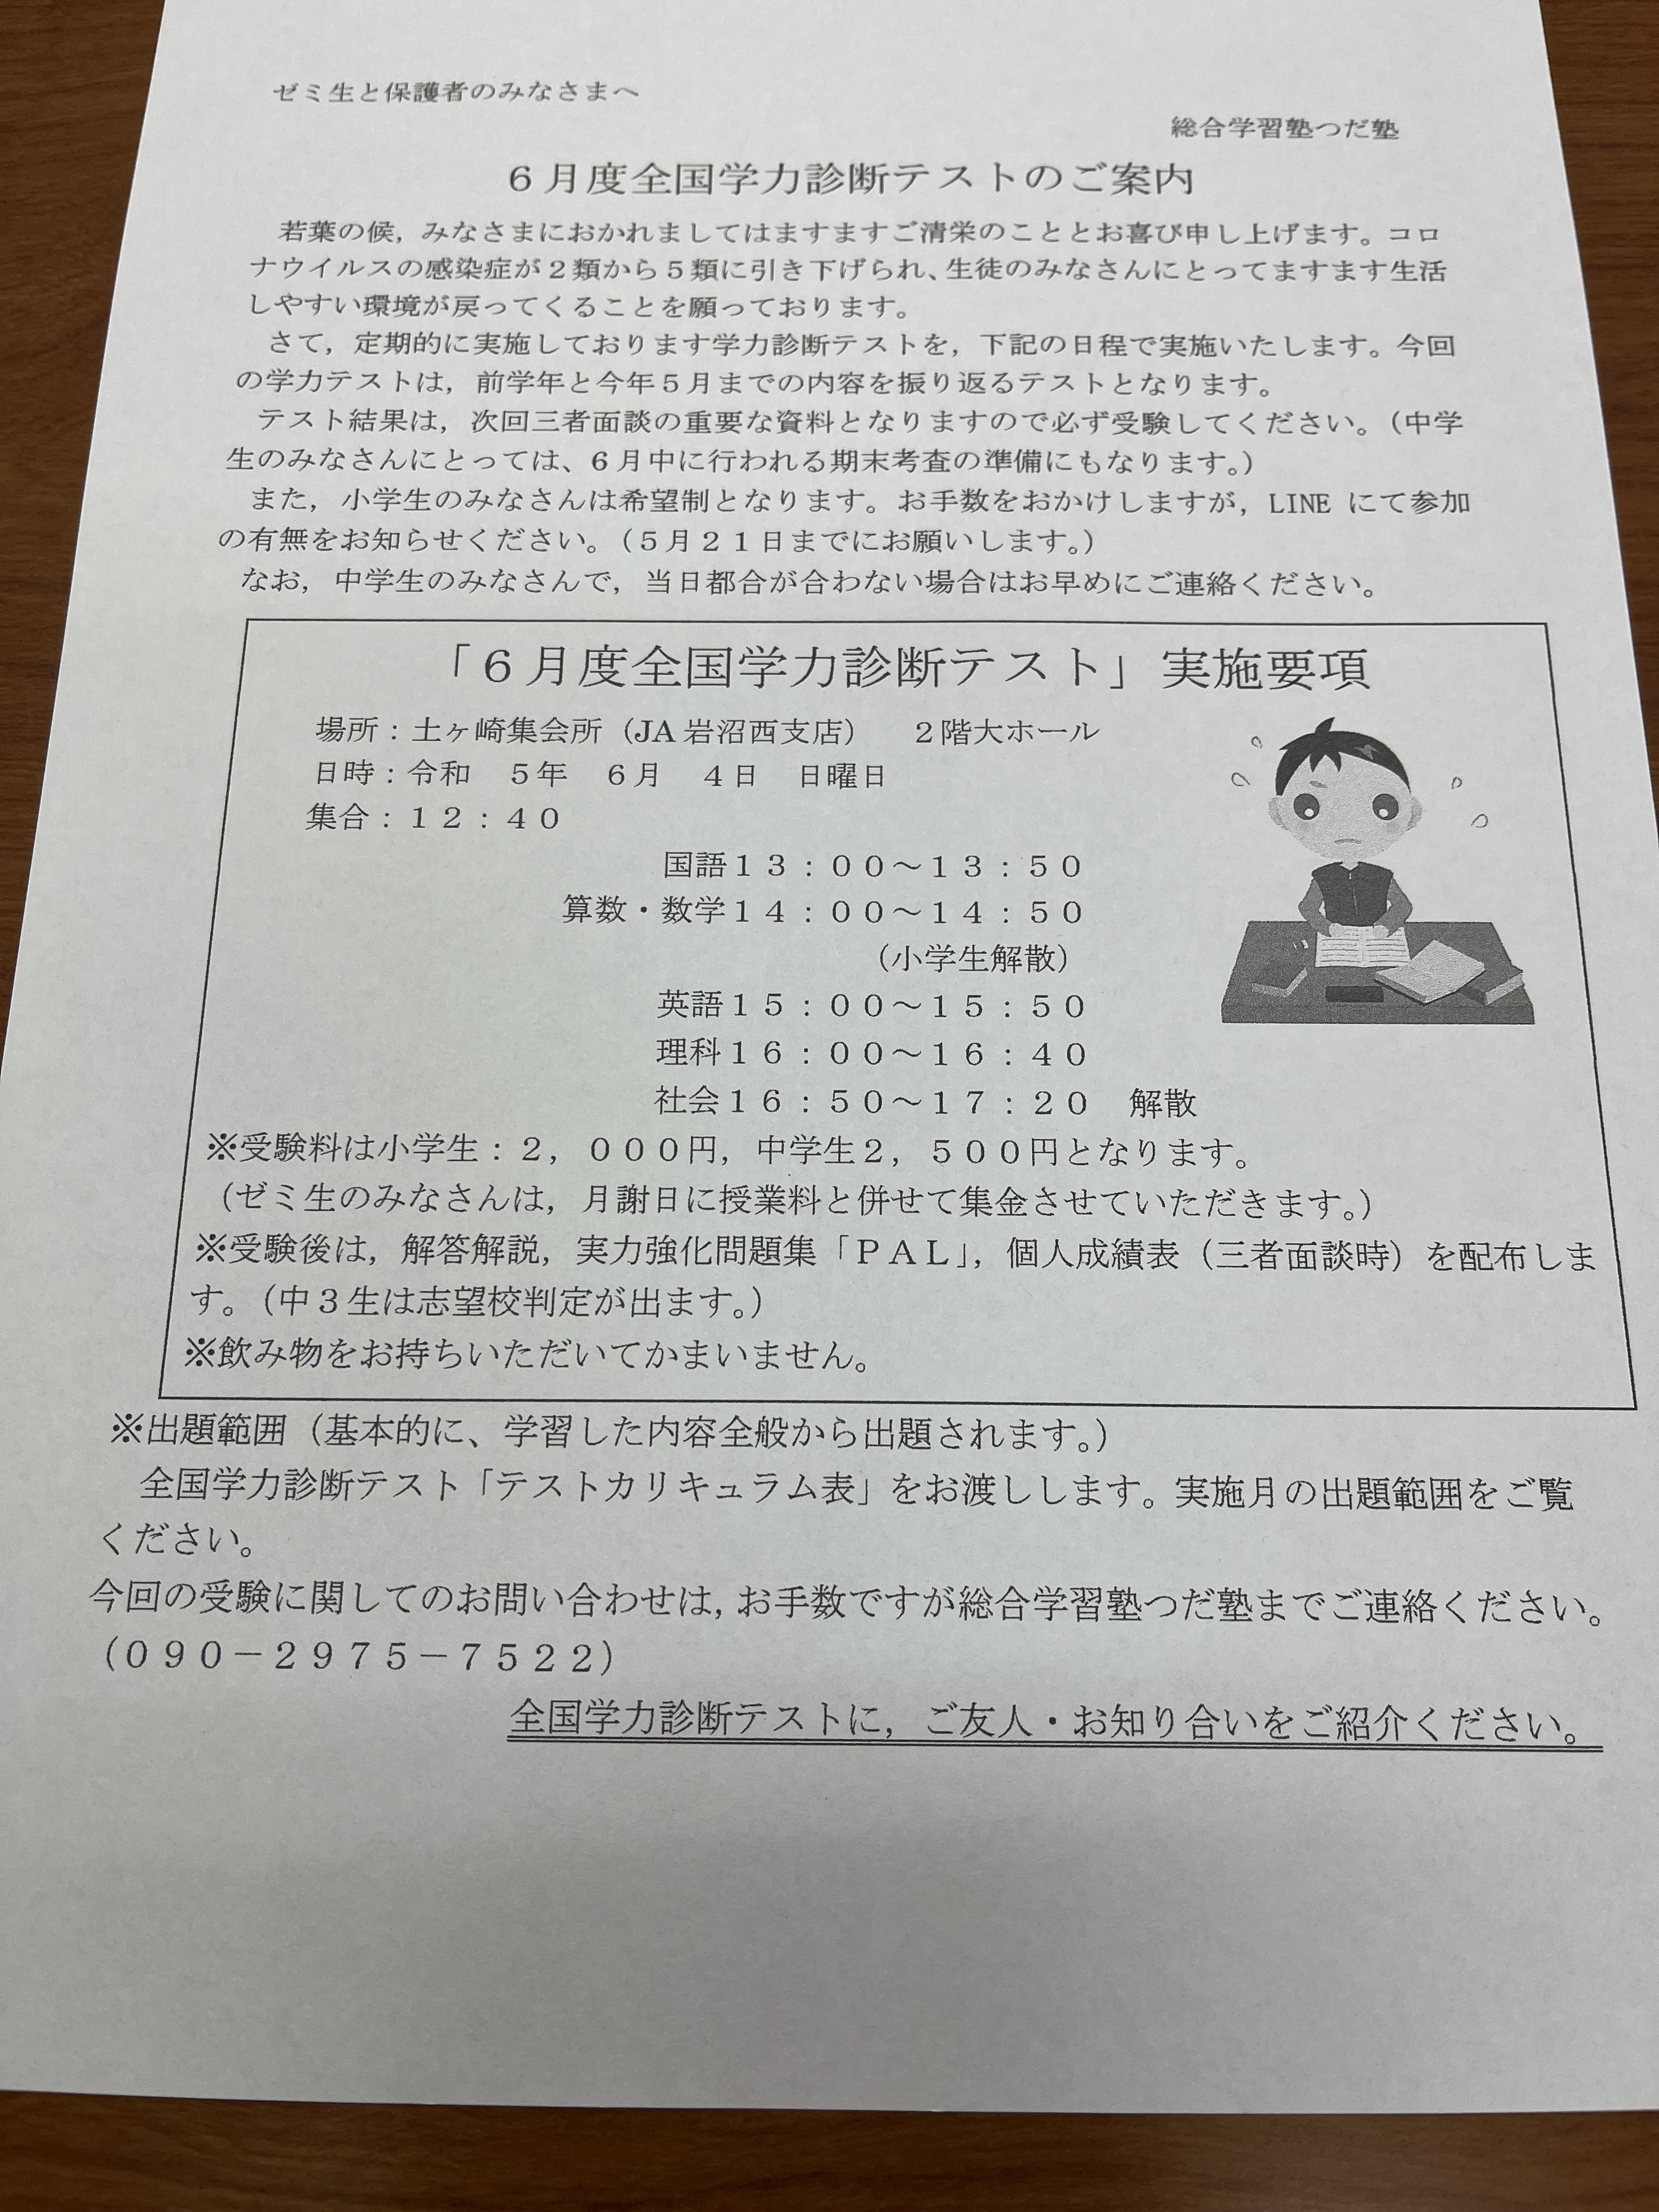 ゼミ生と保護者のみなさまへ
総合学習塾つだ塾
６月度全国学力診断テストのご案内
若葉の候，みなさまにおかれましてはますますご清栄のこととお喜び申し上げます。コロ
ナウイルスの感染症が２類から５類に引き下げられ、生徒のみなさんにとってますます生活
しやすい環境が戻ってくることを願っております。
さて，定期的に実施しております学力診断テストを，下記の日程で実施いたします。今回
の学力テストは，前学年と今年５月までの内容を振り返るテストとなります。
テスト結果は，次回三者面談の重要な資料となりますので必ず受験してください。（中学
生のみなさんにとっては、６月中に行われる期末考査の準備にもなります。）
また，小学生のみなさんは希望制となります。お手数をおかけしますが，LINE にて参加
の有無をお知らせください。（５月２１日までにお願いします。）
なお，中学生のみなさんで，当日都合が合わない場合はお早めにご連絡ください。
「６月度全国学力診断テスト」実施要項
場所：土ヶ崎集会所（JA 岩沼西支店）　２階大ホール
日時：令和　５年　６月　４日　日曜日
集合：１２：４０
国語１３：００～１３：５０
算数・数学１４：００～１４：５０
（小学生解散）
英語１５：００～１５：５０
理科１６：００～１６：４０
社会１６：５０～１７：２０　解散
※受験料は小学生：２，０００円，中学生２，５００円となります。
（ゼミ生のみなさんは，月謝日に授業料と併せて集金させていただきます。）
※受験後は，解答解説，実力強化問題集「ＰＡＬ」，個人成績表（三者面談時）を配布しま
す。（中３生は志望校判定が出ます。）
※飲み物をお持ちいただいてかまいません。
※出題範囲（基本的に、学習した内容全般から出題されます。）
全国学力診断テスト「テストカリキュラム表」をお渡しします。実施月の出題範囲をご覧
ください。
今回の受験に関してのお問い合わせは，お手数ですが総合学習塾つだ塾までご連絡ください。
（０９０－２９７５－７５２２）
全国学力診断テストに，ご友人・お知り合いをご紹介ください。